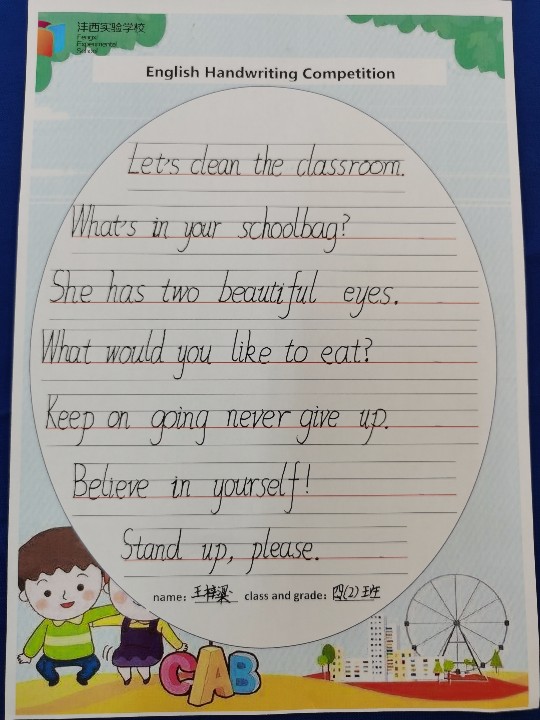 沣西实验学校
Fengxi
Experimental
School
English Handwriting Competition
Let's clean the classroom.
What's in your schoolbag?
She has two beautiful eyes.
What would you like to eat?
Keep on going never give up.
Believe in yourself!
Stand up, please.
name: 王梓梁 class and grade: 四(2)班
CAB